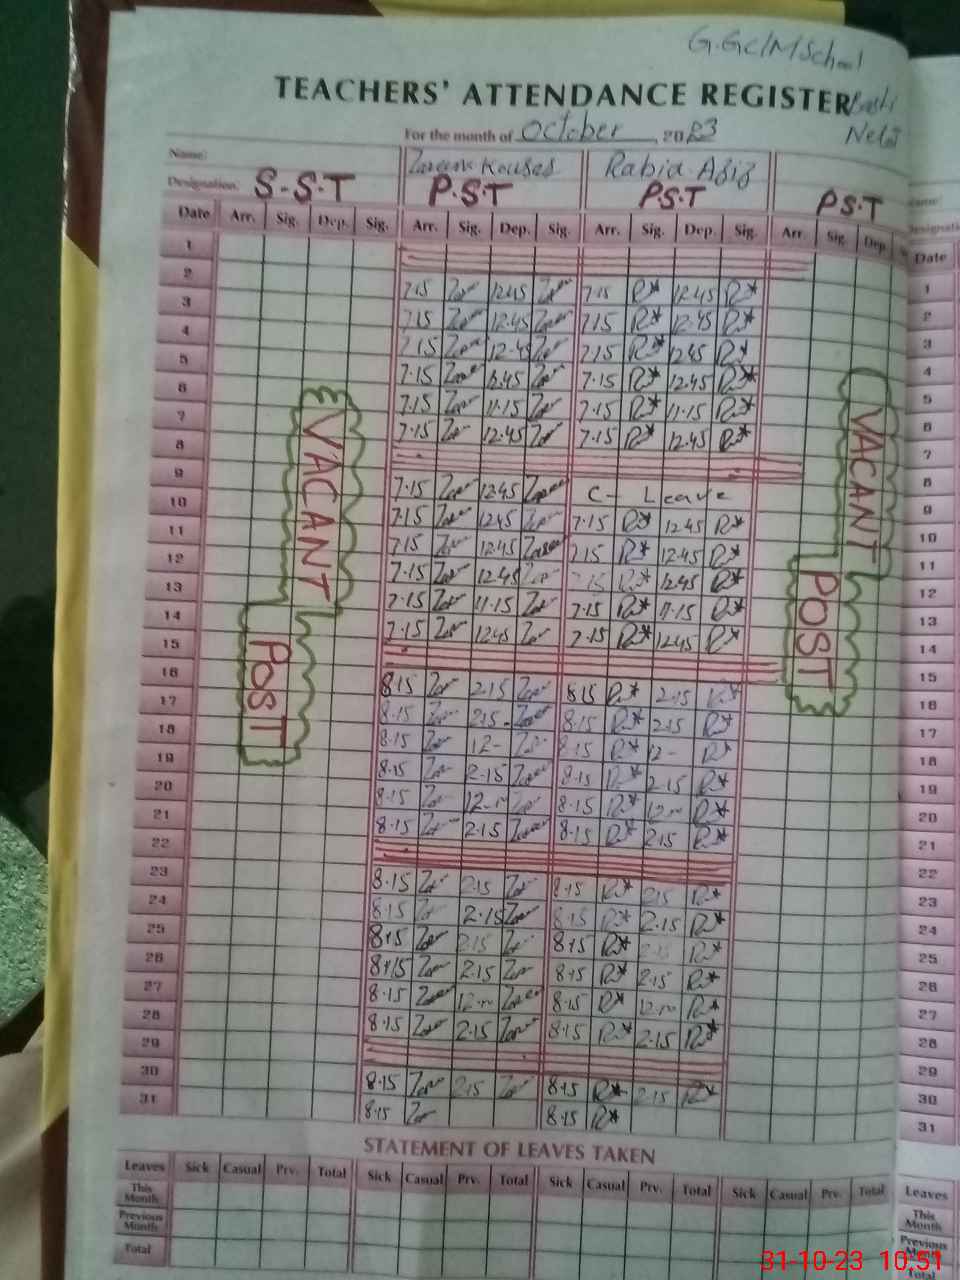 G.G.C/M School
TEACHERS' ATTENDANCE REGISTER Basti
For the month of October 2023
Name: Zareen Kousar Rabia Aziz
Designation. S-S-T P.S.T P.S.T P.S.T
Date Arr. Sig. Dep. Sig. Arr. Sig. Dep. Sig. Arr. Sig. Dep. Sig. Arr. Sig. Dep. Date
1
2 7.15 12.45 7.15 R* 12.45 R* 1
3 7.15 12.45 7.15 R* 12.45 R* 2
4 7.15 12.45 7.15 R* 12.45 R* 3
5 7.15 12.45 7.15 R* 12.45 R* 4
6 7.15 11.15 7.15 R* 11.15 R* 5
7 7.15 12.45 7.15 R* 12.45 R* 6
8 7
9 7.15 12.45 C- Leave 8
10 7.15 12.45 7.15 R* 12.45 R* 9
11 7.15 12.45 7.15 R* 12.45 R* 10
12 7.15 12.45 7.15 R* 12.45 R* 11
13 7.15 11.15 7.15 R* 11.15 R* 12
14 7.15 12.45 7.15 R* 12.45 R* 13
15 14
16 8.15 2.15 8.15 R* 2.15 R* 15
17 8.15 2.15 8.15 R* 2.15 R* 16
18 8.15 12- 8.15 R* 12- R* 17
19 8.15 2.15 8.15 R* 2.15 R* 18
20 8.15 12- 8.15 R* 12- R* 19
21 8.15 2.15 8.15 R* 2.15 R* 20
22 21
23 8.15 2.15 8.15 R* 2.15 R* 22
24 8.15 2.15 8.15 R* 2.15 R* 23
25 8.15 2.15 8.15 R* 2.15 R* 24
26 8.15 2.15 8.15 R* 2.15 R* 25
27 8.15 12- 8.15 R* 12- R* 26
28 8.15 2.15 8.15 R* 2.15 R* 27
29 28
30 8.15 2.15 8.15 R* 2.15 R* 29
31 8.15 8.15 R* 30
31
VACANT POST
VACANT POST
STATEMENT OF LEAVES TAKEN
Leaves Sick Casual Prv. Total Sick Casual Prv. Total Sick Casual Prv. Total Sick Casual Prv. Total Leaves
This Month This Month
Previous Month Previous Month
Total Total
31-10-23 10:51